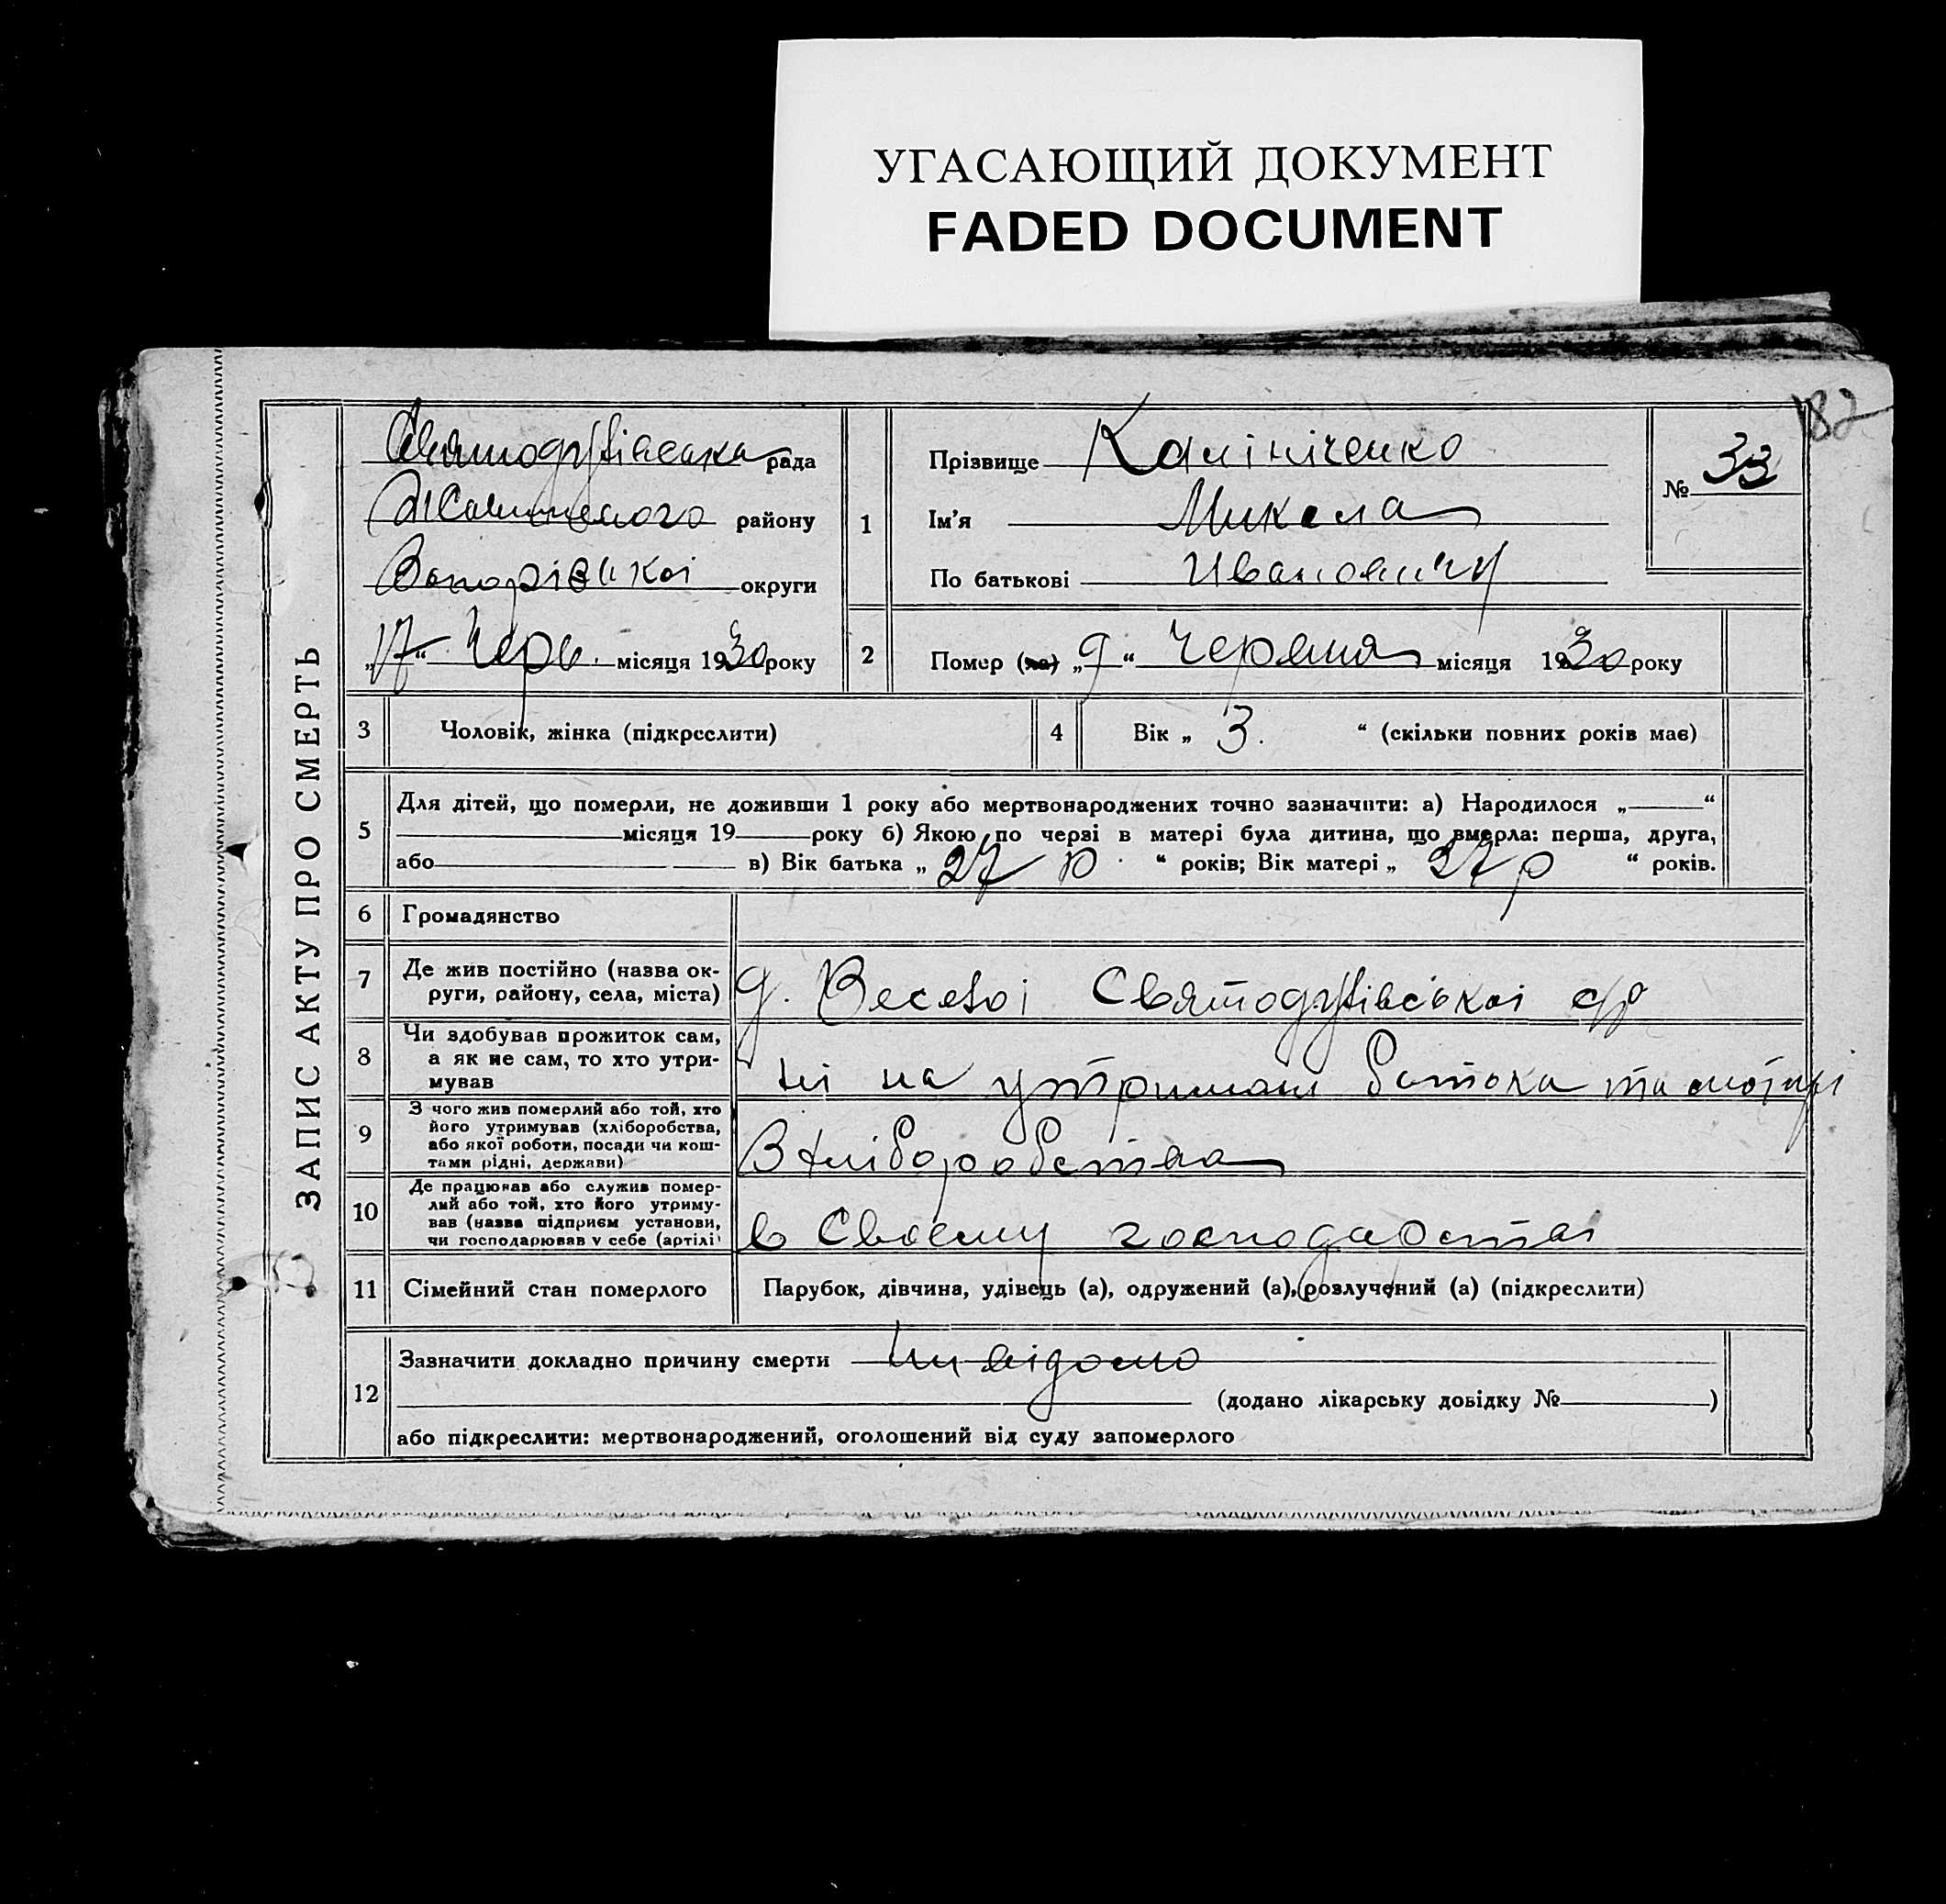 УГАСАЮЩИЙ ДОКУМЕНТ
FADED DOCUMENT
182
ЗАПИС АКТУ ПРО СМЕРТЬ
Святодухівська рада
району
округи
„17“ Черв. місяця 1930 року
1
Прізвище Калініченко
Ім’я Микола
По батькові Ивановичу
№ 33
2
Помер (ла) „9“ Червня місяця 1930 року
3 Чоловік, жінка (підкреслити)
4 Вік „ 3. “ (скільки повних років має)
5 Для дітей, що померли, не доживши 1 року або мертвонароджених точно зазначити: а) Народилося „ “
місяця 19 року б) Якою по черзі в матері була дитина, що вмерла: перша, друга,
або в) Вік батька „ 27 р. “ років; Вік матері „ 27 р “ років.
6 Громадянство
7 Де жив постійно (назва ок-
руги, району, села, міста)
Святодухівської с/р
8 Чи здобував прожиток сам,
а як не сам, то хто утри-
мував
ні на утримані батька та матирі
9 З чого жив померлий або той, хто
його утримував (хліборобства,
або якої роботи, посади чи кош-
тами рідні, держави)
З хліборобства
10 Де працював або служив помер-
лий або той, хто його утриму-
вав (назва підприєм установи,
чи господарював у себе (артілі)
в Своєму господарстві
11 Сімейний стан померлого
Парубок, дівчина, удівець (а), одружений (а), розлучений (а) (підкреслити)
12 Зазначити докладно причину смерти Ни відомо
(додано лікарську довідку № )
або підкреслити: мертвонароджений, оголошений від суду запомерлого